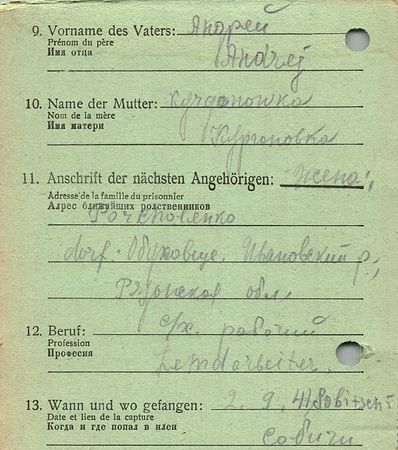 9. Vorname des Vaters: Андрей
Prénom du père
Имя отца
Andrej
10. Name der Mutter:
Nom de la mère
Имя матери
Кургоновка
11. Anschrift der nächsten Angehörigen: жена:
Adresse de la famille du prisonnier
Адрес ближайших родственников
dorf. Ивановский р,
обл.
12. Beruf: с/х. рабочий
Profession
Професия
Lendarbeiter.
13. Wann und wo gefangen: 2. 9. 41. Sobitsch
Date et lieu de la capture
Когда и где попал в плен
Собичи